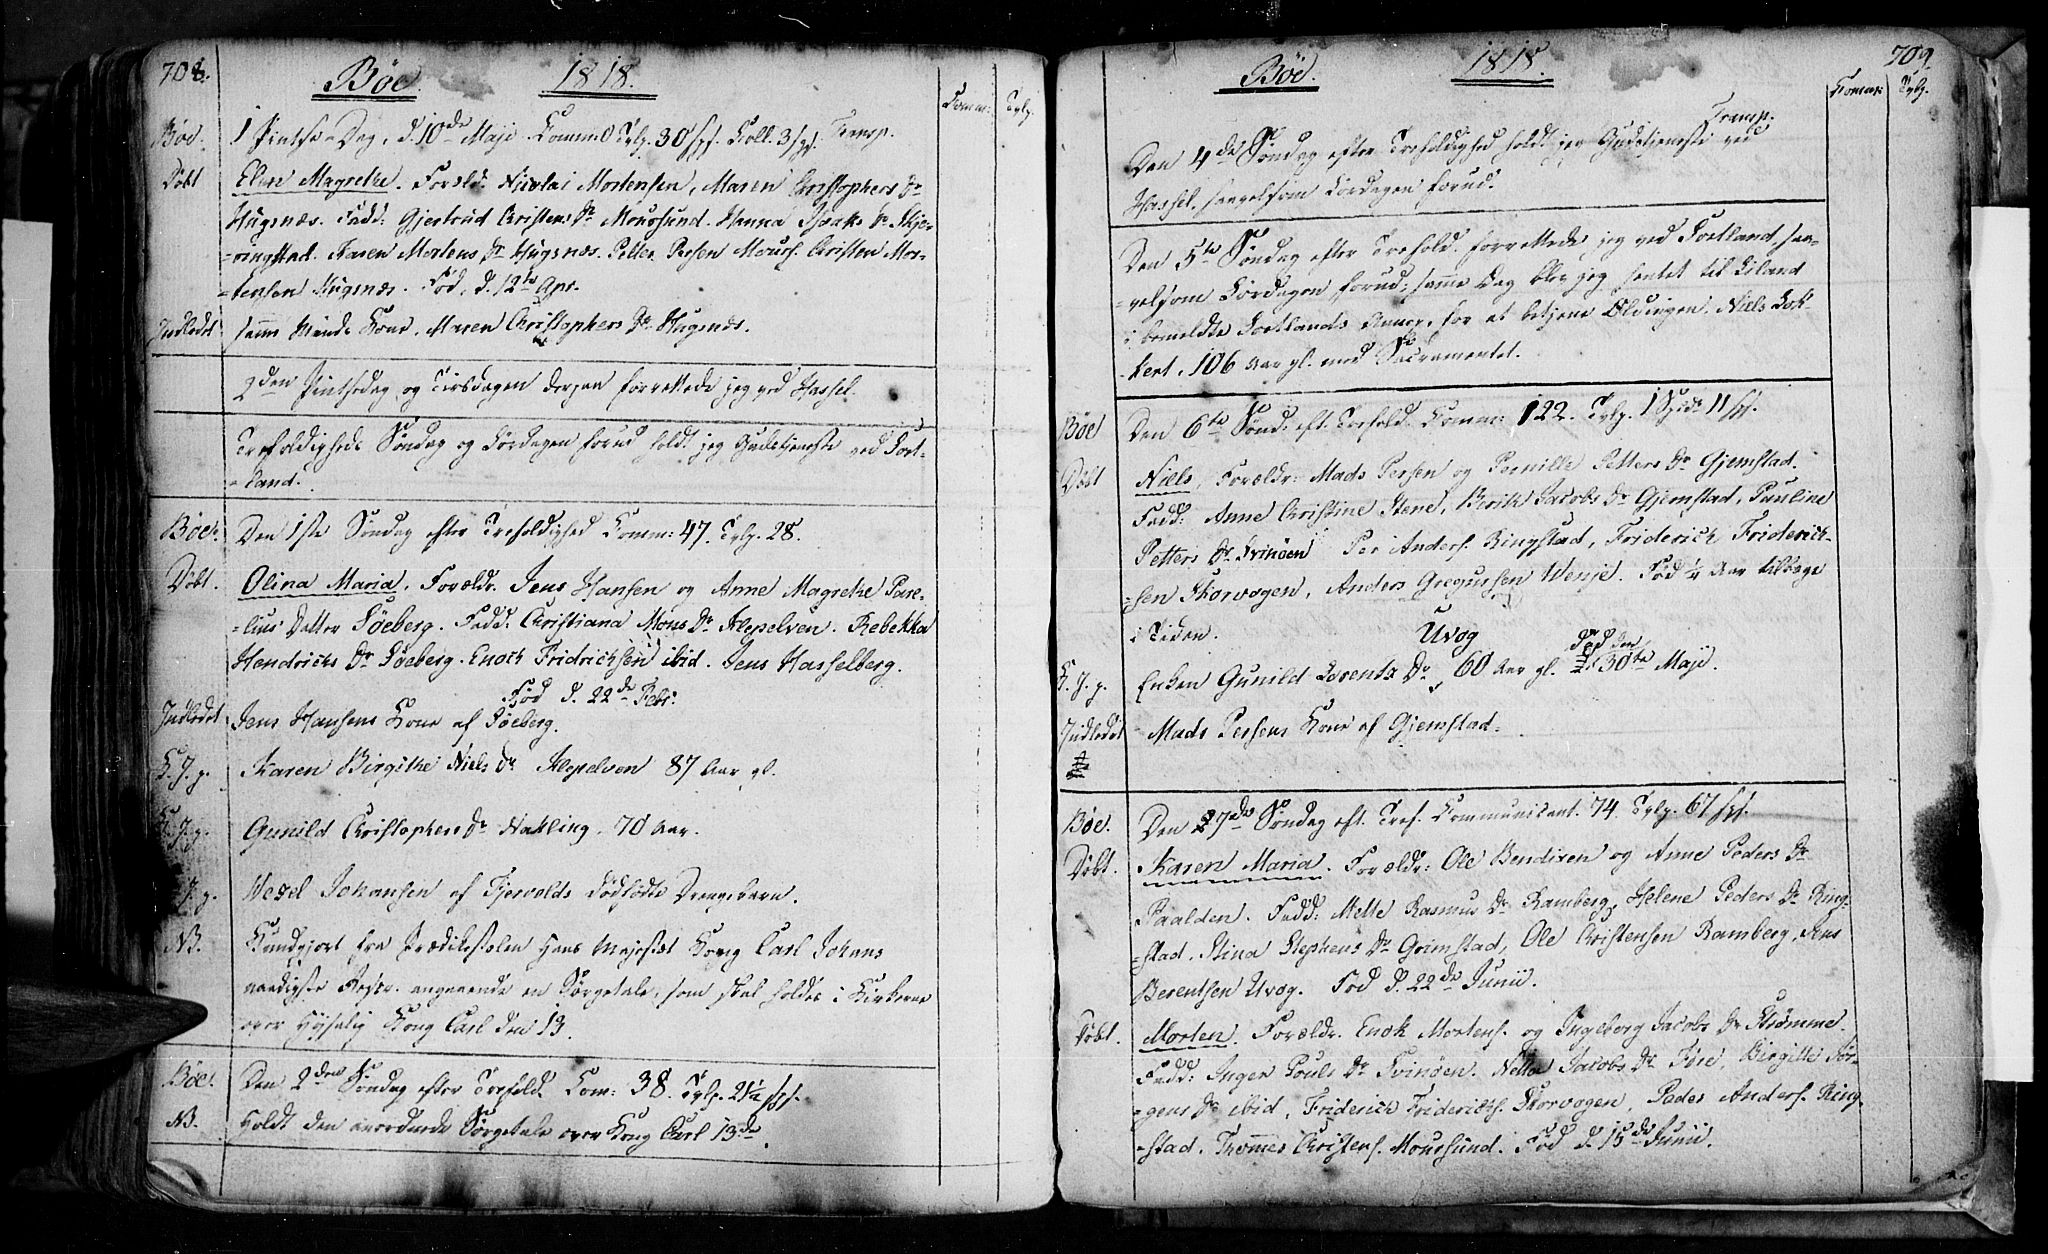 708.
Bøe. 1818.
Comm: Tvlg.
Bøe. 1 Pintse-Dag, d. 10de Maji. Comm: 0 Tvlg. 30 sps. Coll. 3 sps. Transp.
Døbt Elen Magrethe. Foreld: Nicolai Mortensen, Maren Christophers Dr
Hugsnæs. Fadd: Gjertrud Christens Dr Moursund. Hanna Isaks Dr Skjer-
-ringstad. Karen Mortens Dr Hugsnæs. Petter Persen Mours. Christen Mor-
-tensen Hugsnæs. Fød, d. 12te Apr.
Indledet samme Mands Kone, Maren Christophers Dr Hugsnæs.
2den Pintsedag og Tirsdagen derpaa forrettede jeg ved Hassel.
Trefoldigheds Søndag og Lørdagen forud holdt jeg Gudstjeneste ved Sort-
-land.
Bøe. Den 1ste Søndag efter Trefoldighed Comm: 47. Tvlg. 28.
Døbt. Olina Maria, Forældr. Jens Hansen og Anne Magrethe Pare-
-lius Datter Søeberg. Fadd: Christiana Mons Dr Klepelven. Rebekka
Hendrichs Dr Søeberg. Enoch Fridrichsen ibid. Jens Hasselberg.
Fød d. 22de Febr.
Indledet Jens Hansens Kone af Søeberg.
G. J. p. Karen Birgithe Niels Dr Klepelven 87 Aar gl.
G. J. p. Gunild Christophers Dr Nakling. 70 Aar.
J. p. Wezel Johansen af Fjervolds dødfødte Drengebarn.
NB. Kundgjort fra Prædikestolen Hans Majestæt Kong Carl Johans
naadigste Reskr. angaaende en Sørgetale, som skal holdes i Kirkerne
over Høysalig Kong Carl den 13.
Bøe. Den 2den Søndag efter Trefold. Com: 38. Tvlg. 2½ sps.
NB. Holdt den anordnede Sørgetale over Kong Carl 13de.
709.
Bøe. 1818.
Komm: Tvlg.
Transp.
Den 4de Søndag efter Trefoldighed holdt jeg Gudstjeneste ved
Hassel, saavelsom Lørdagen forud.
Den 5te Søndag efter Trefold. forrettede jeg ved Sortland, saa-
-velsom Lørdagen forud; samme Dag blev jeg hentet til Eiland
i bemeldte Sortlands Annex, for at betjene Oldingen. Niels Lok-
-kert, 106 Aar gl. med Sacramentet.
Bøe Den 6te Sønd: eft. Trefold. Comm: 122. Tvlg. 1 Spd. 11 sps.
Døbt Niels, Forældr: Mads Persen og Pernille Petters Dr Gjemstad.
Fadd: Anne Christine Stene, Berith Jacobs Dr Gjemstad, Pauline
Petters Dr Svinøen Per Anders. Ringstad, Friderich Friderich-
-sen Skorvogen, Anders Gregussen Wenje. Fød ½ Aar tilbage
i Tiden. Uvog død den
G. J. p. Enken Gunild Lorentz Dr 60 Aar gl. 30te Maji.
Indledet Mads Persens Kone af Gjemstad.
Bøe. Den 7de Søndag eft. Tref. Communicant. 74. Tvlg. 67 sps.
Døbt. Karen Maria. Forældr: Ole Bendixen og Anne Peders Dr
Paalden. Fadd: Mette Rasmus Dr Ramberg, Helene Peders Dr Ring-
-stad, Stina Stephens Dr Grimstad, Ole Christensen Ramberg, Jens
Berentsen Uvog. Fød d. 22de Junii.
Døbt. Morten. Forældr. Enok Mortens. og Ingeborg Jacobs Dr Strømme.
Fadd: Inger Pouls Dr Svinøen. Netta Jacobs Dr Føre. Birgitte Jør-
-gens Dr ibid, Friderich Friderichs. Skorvogen, Peder Anders. Ring-
-stad. Thomes Christens. Moursund. Fød d. 15de Junii.